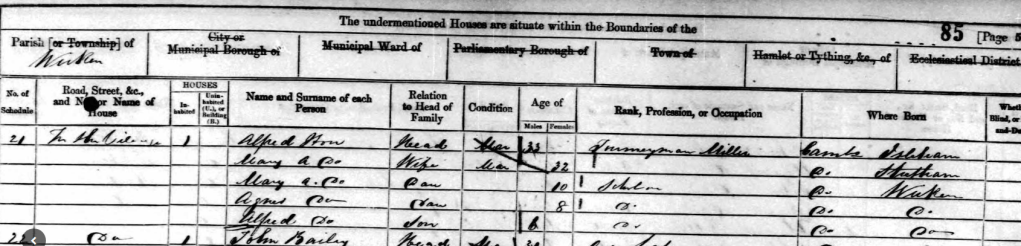 The undermentioned Houses are situate within the Boundaries of the
85 [Page 5
Parish [or Township] of City or Municipal Borough of Municipal Ward of Parliamentary Borough of Town of Hamlet or Tything, &c., of Ecclesiastical District
Wicken
No. of Schedule Road, Street, &c., and No. or Name of House HOUSES Inhabited Uninhabited (U.), or Building (B.) Name and Surname of each Person Relation to Head of Family Condition Age of Males Females Rank, Profession, or Occupation Where Born Whet Blind, or and-Du
21 In the Village 1 Alfred Head Mar 33 Journeyman Miller Cambs Isleham
Mary A Do Wife Mar 32 Do Stretham
Mary A. Do Dau 10 Scholar Do Wicken
Agnes Do Dau 8 Do Do Do
Alfred Do Son 6 Do Do Do
22 Do 1 John Bailey Head Mar